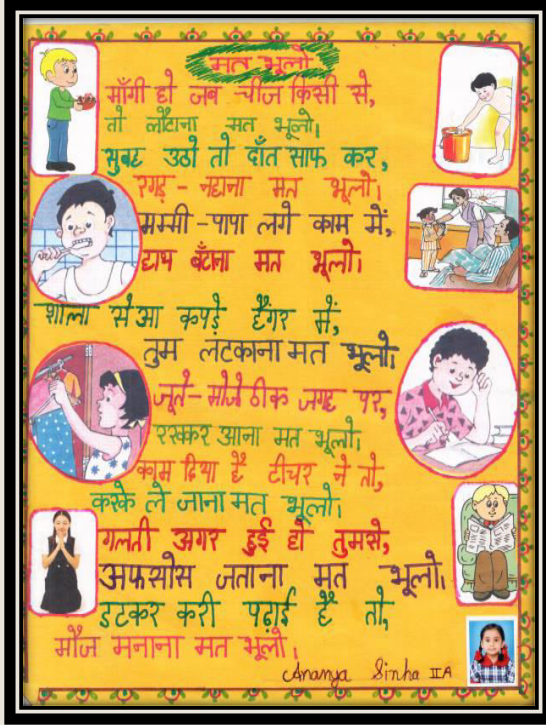 मत भूलो
माँगी हो जब चीज किसी से,
तो लौटाना मत भूलो।
सुबह उठो तो दाँत साफ कर,
रगड़ - नहाना मत भूलो।
मम्मी - पापा लगे काम में,
हाथ बँटाना मत भूलो।
शाला से आ कपड़े हैंगर में,
तुम लटकाना मत भूलो।
जूते - मोजे ठीक जगह पर,
रखकर आना मत भूलो।
काम दिया है टीचर ने तो,
करके ले जाना मत भूलो।
गलती अगर हुई हो तुमसे,
अफसोस जताना मत भूलो।
डटकर करी पढ़ाई है तो,
मौज मनाना मत भूलो।
Ananya Sinha II A